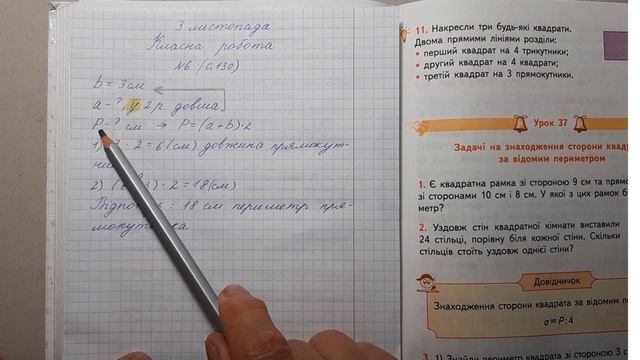 3 листопада
Класна робота
№6 (с.130)
b = 3 см
a - ?, у 2 р. довша
P - ? см → P = (a + b) · 2
1) · 2 = 6 (см) довжина прямокут-
2) ( 3) · 2 = 18 (см)
: 18 см периметр пря-
11. Накресли три будь-які квадрати.
Двома прямими лініями розділи:
• перший квадрат на 4 трикутники;
• другий квадрат на 4 квадрати;
• третій квадрат на 3 прямокутники.
Урок 37
Задачі на знаходження сторони
за відомим периметром
1. Є квадратна рамка зі стороною 9 см та
зі сторонами 10 см і 8 см. У якої з цих рамок
метр?
2. Уздовж стін квадратної кімнати виставили
24 стільці, порівну біля кожної стіни. Скільки
стільців стоїть уздовж однієї стіни?
Довідничок
Знаходження сторони квадрата за відомим
a = P : 4
3. 1) Знайди периметр квадрата зі стороною 3